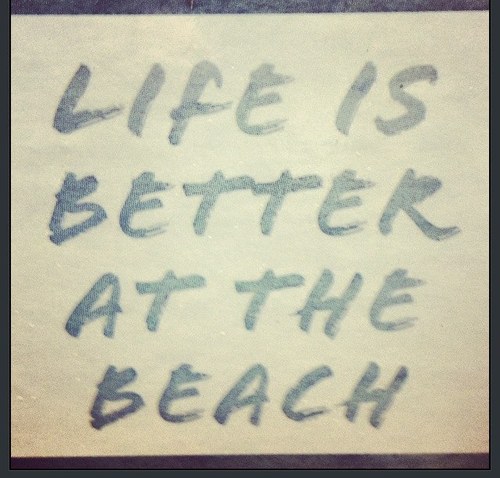 LIFE IS
BETTER
AT THE
BEACH